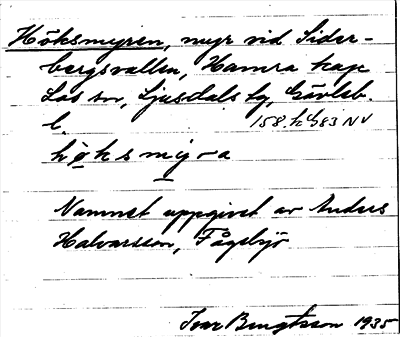 Höksmyren, myr vid Sider-
bergsvallen, Hamra kap
Los sn, Ljusdals tg, Gävleb.
l.
158. h 683 NV
höksmyra
Namnet uppgivet av Anders
Halvarsson, Fågelsjö
Ivar Bengtsson 1935